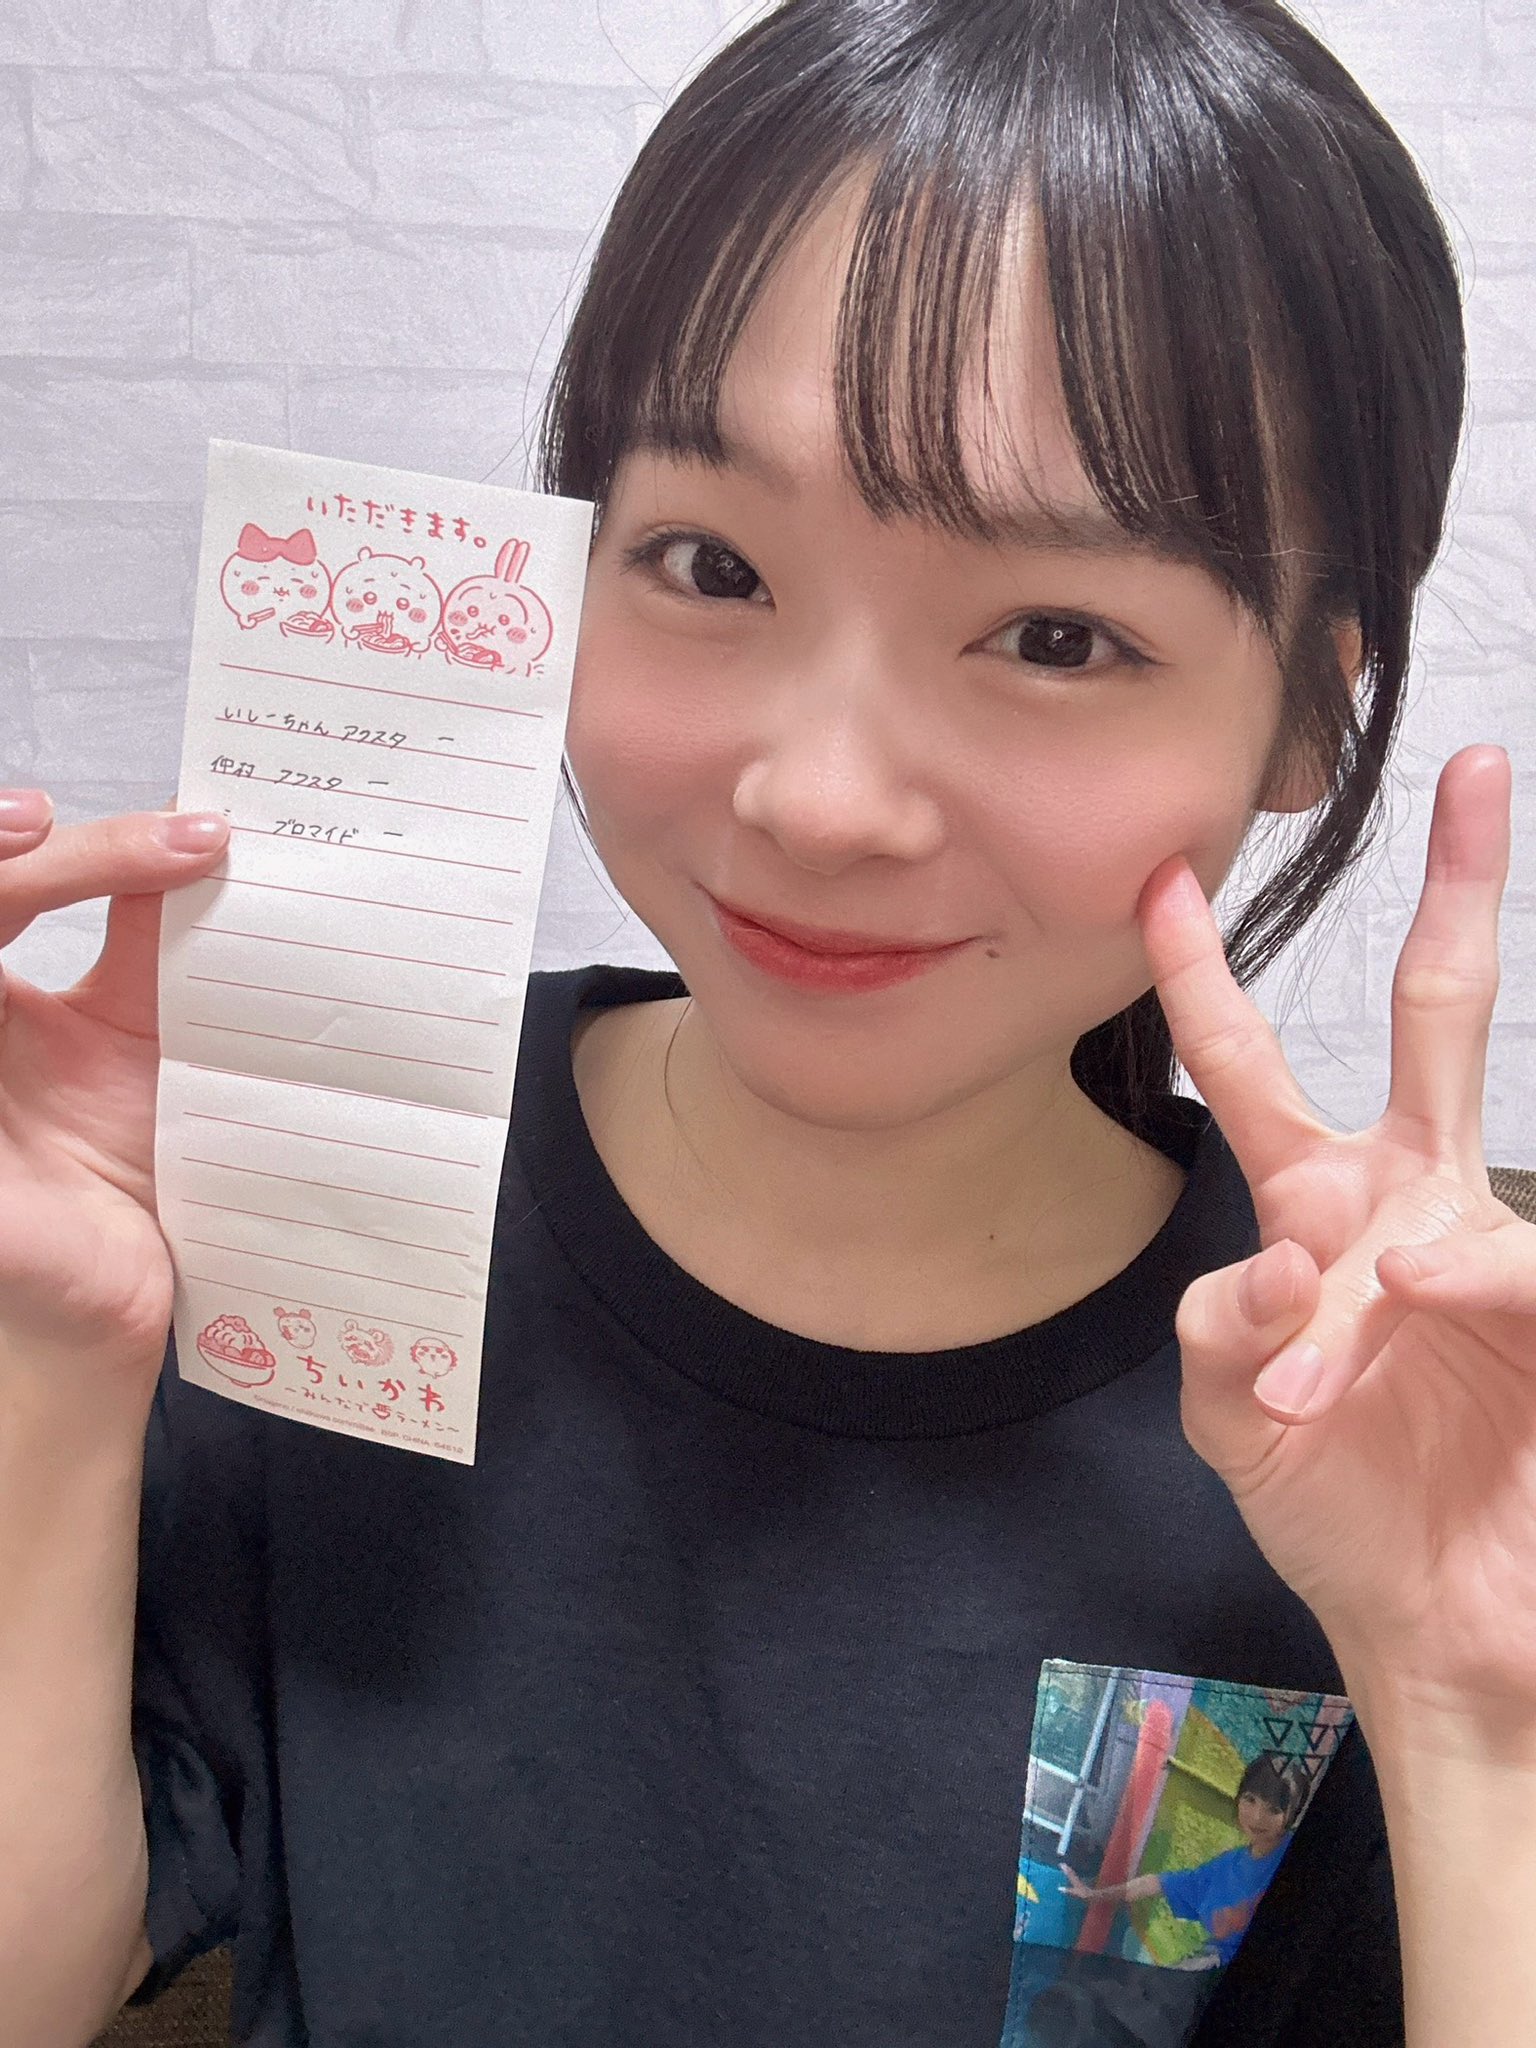 いただきます。
いしーちゃん アクスタ ー
仲村 アクスタ ー
ブロマイド ー
ちいかわ
〜みんなで ラーメン〜
©nagano / chiikawa committee BGP CHINA